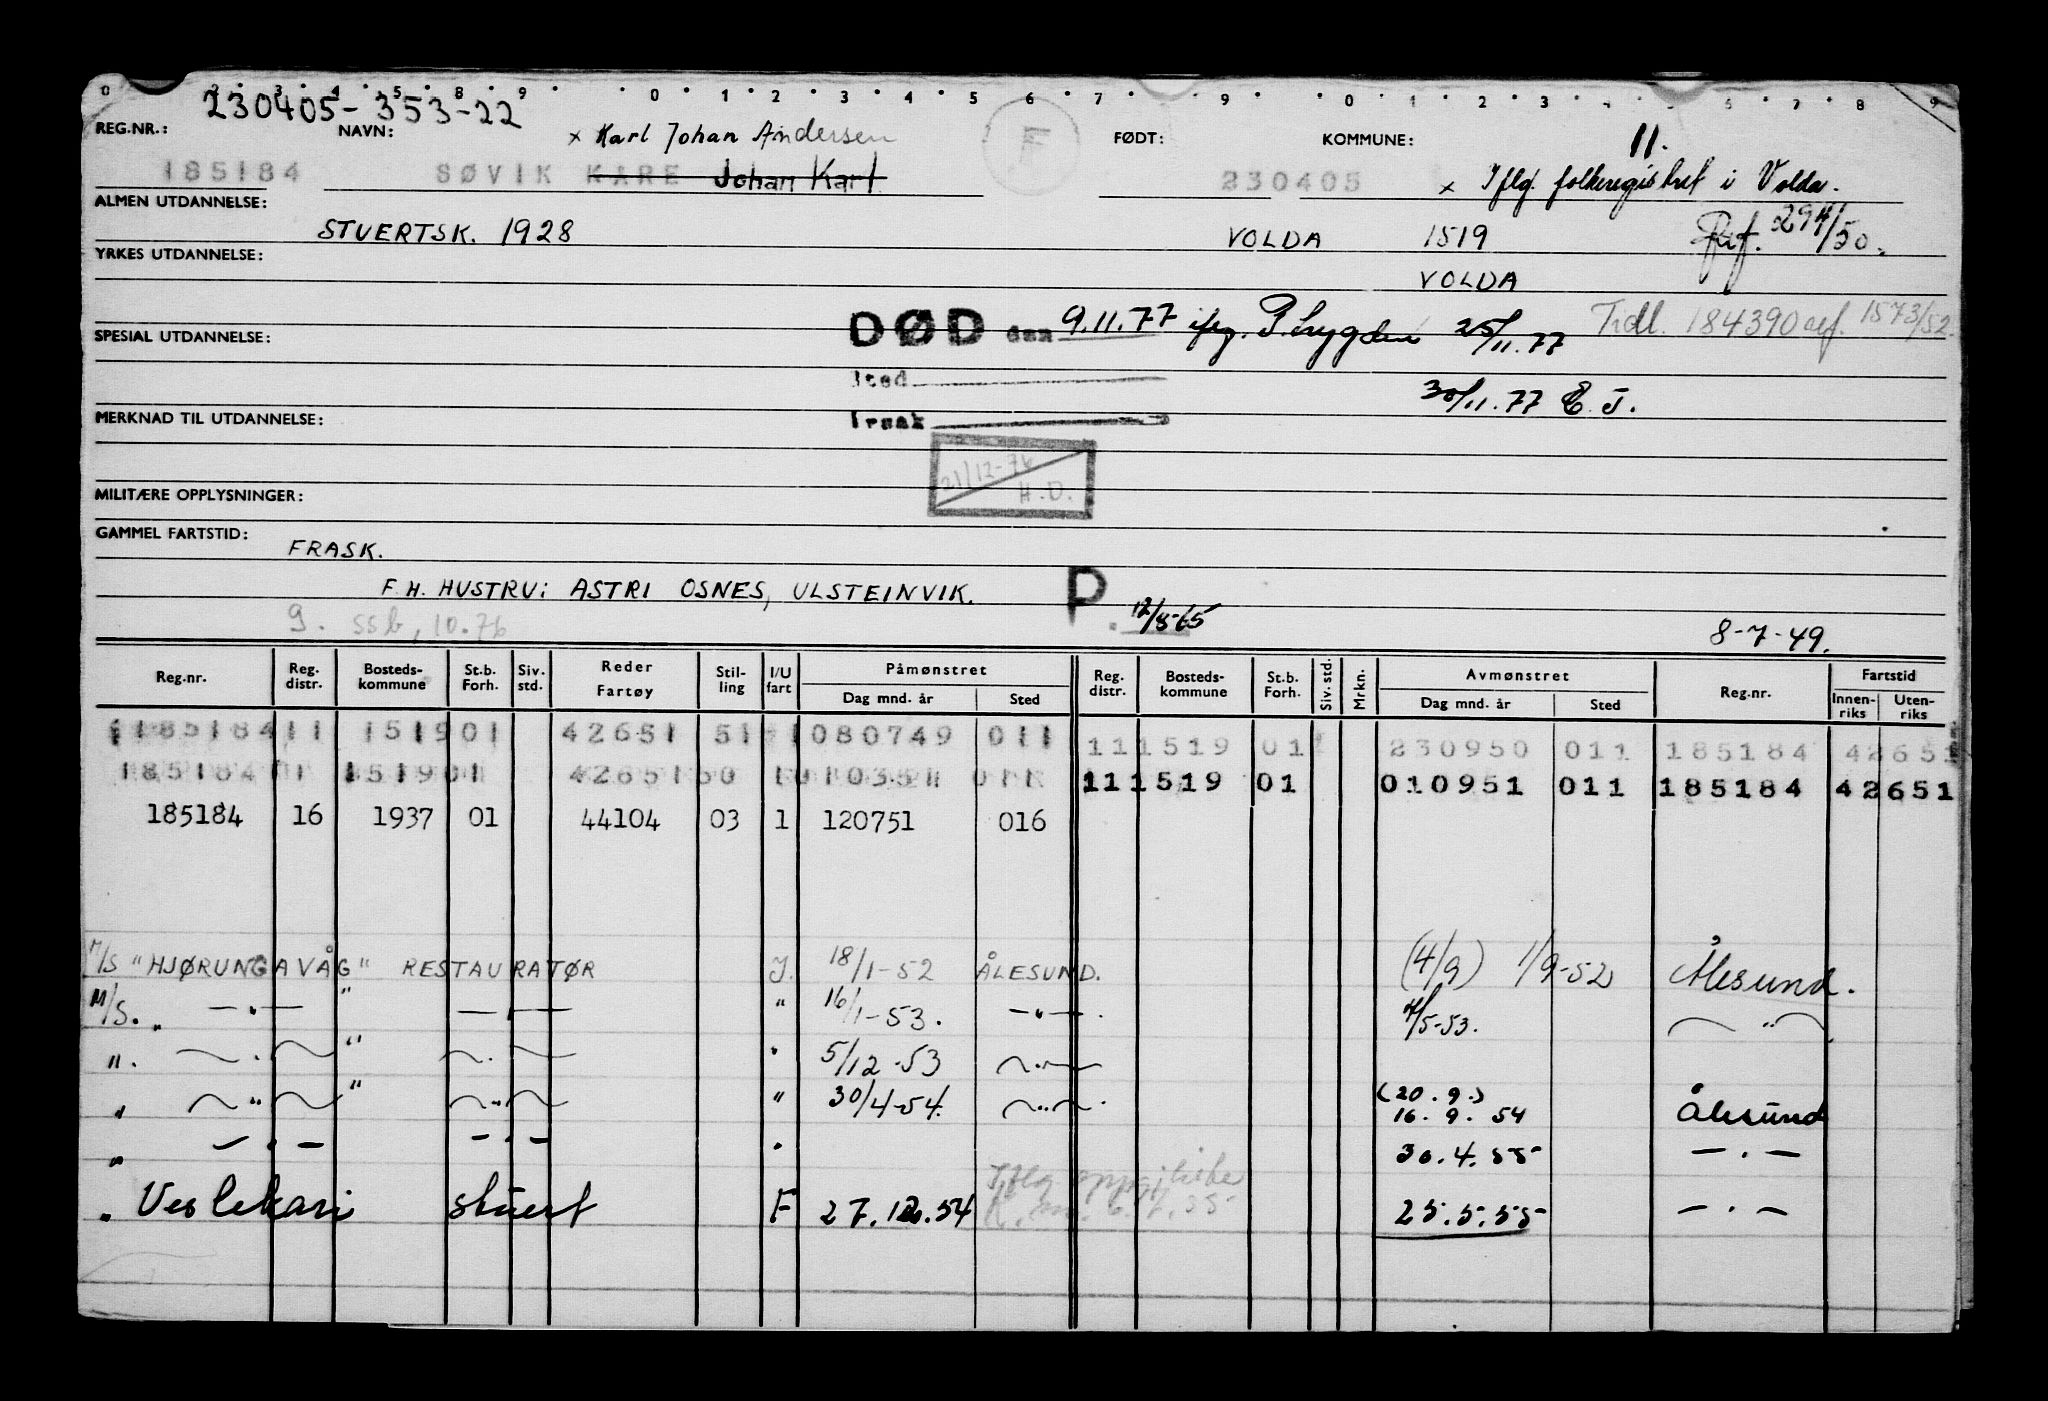 0 2 3 4 5 8 9 0 1 2 3 4 5 6 7 9 0 1 2 3 4 5 6 7 8 9
230405-353-22
REG.NR.: NAVN: x Karl Johan Andersen FØDT: KOMMUNE: 11.
F
185184 SØVIK KARE Johan Karl 230405 x Iflg. folkeregistret i Volda.
ALMEN UTDANNELSE:
STUERTSK. 1928 VOLDA 1519 294/50.
YRKES UTDANNELSE:
VOLDA
DØD den 9.11.77 25/11.77 Tidl. 184390 1573/52.
SPESIAL UTDANNELSE:
Sted
30/11.77 E. J.
MERKNAD TIL UTDANNELSE: Årsak
21/12-76
H.O.
MILITÆRE OPPLYSNINGER:
GAMMEL FARTSTID:
FRASK.
F.H. HUSTRU: ASTRI OSNES, ULSTEINVIK. P. 12/8-65
9. ssb, 10.76 8-7-49.
Reg.nr. Reg. distr. Bosteds-kommune St.b. Forh. Siv. std. Reder Fartøy Stil-ling I/U fart Påmønstret Dag mnd. år Sted Reg. distr. Bosteds-kommune St.b. Forh. Siv. std. Mrkn. Avmønstret Dag mnd. år Sted Reg.nr. Fartstid Innen-riks Uten-riks
185184 11 1519 01 42651 51 1 080749 011 11 1519 01 230950 011 185184 42651
185184 11 1519 01 42651 50 1 010351 011 11 1519 01 010951 011 185184 42651
185184 16 1937 01 44104 03 1 120751 016
M/S "HJØRUNGAVÅG" RESTAURATØR I. 18/1-52 ÅLESUND. (4/9) 1/9-52 Ålesund.
M/S. " — " — " — " — " 16/1-53. — " — . 4/5-53. — " —
". — " — " — " — " 5/12-53 — " —
" — " — " — " — " 30/4-54. — " — . (20.9.) 16.9.54 Ålesund
" — " — — " — " 30.4.55 — " —
" Veslekari stuert F 27.12.54 Iflg 25.5.55 — " —